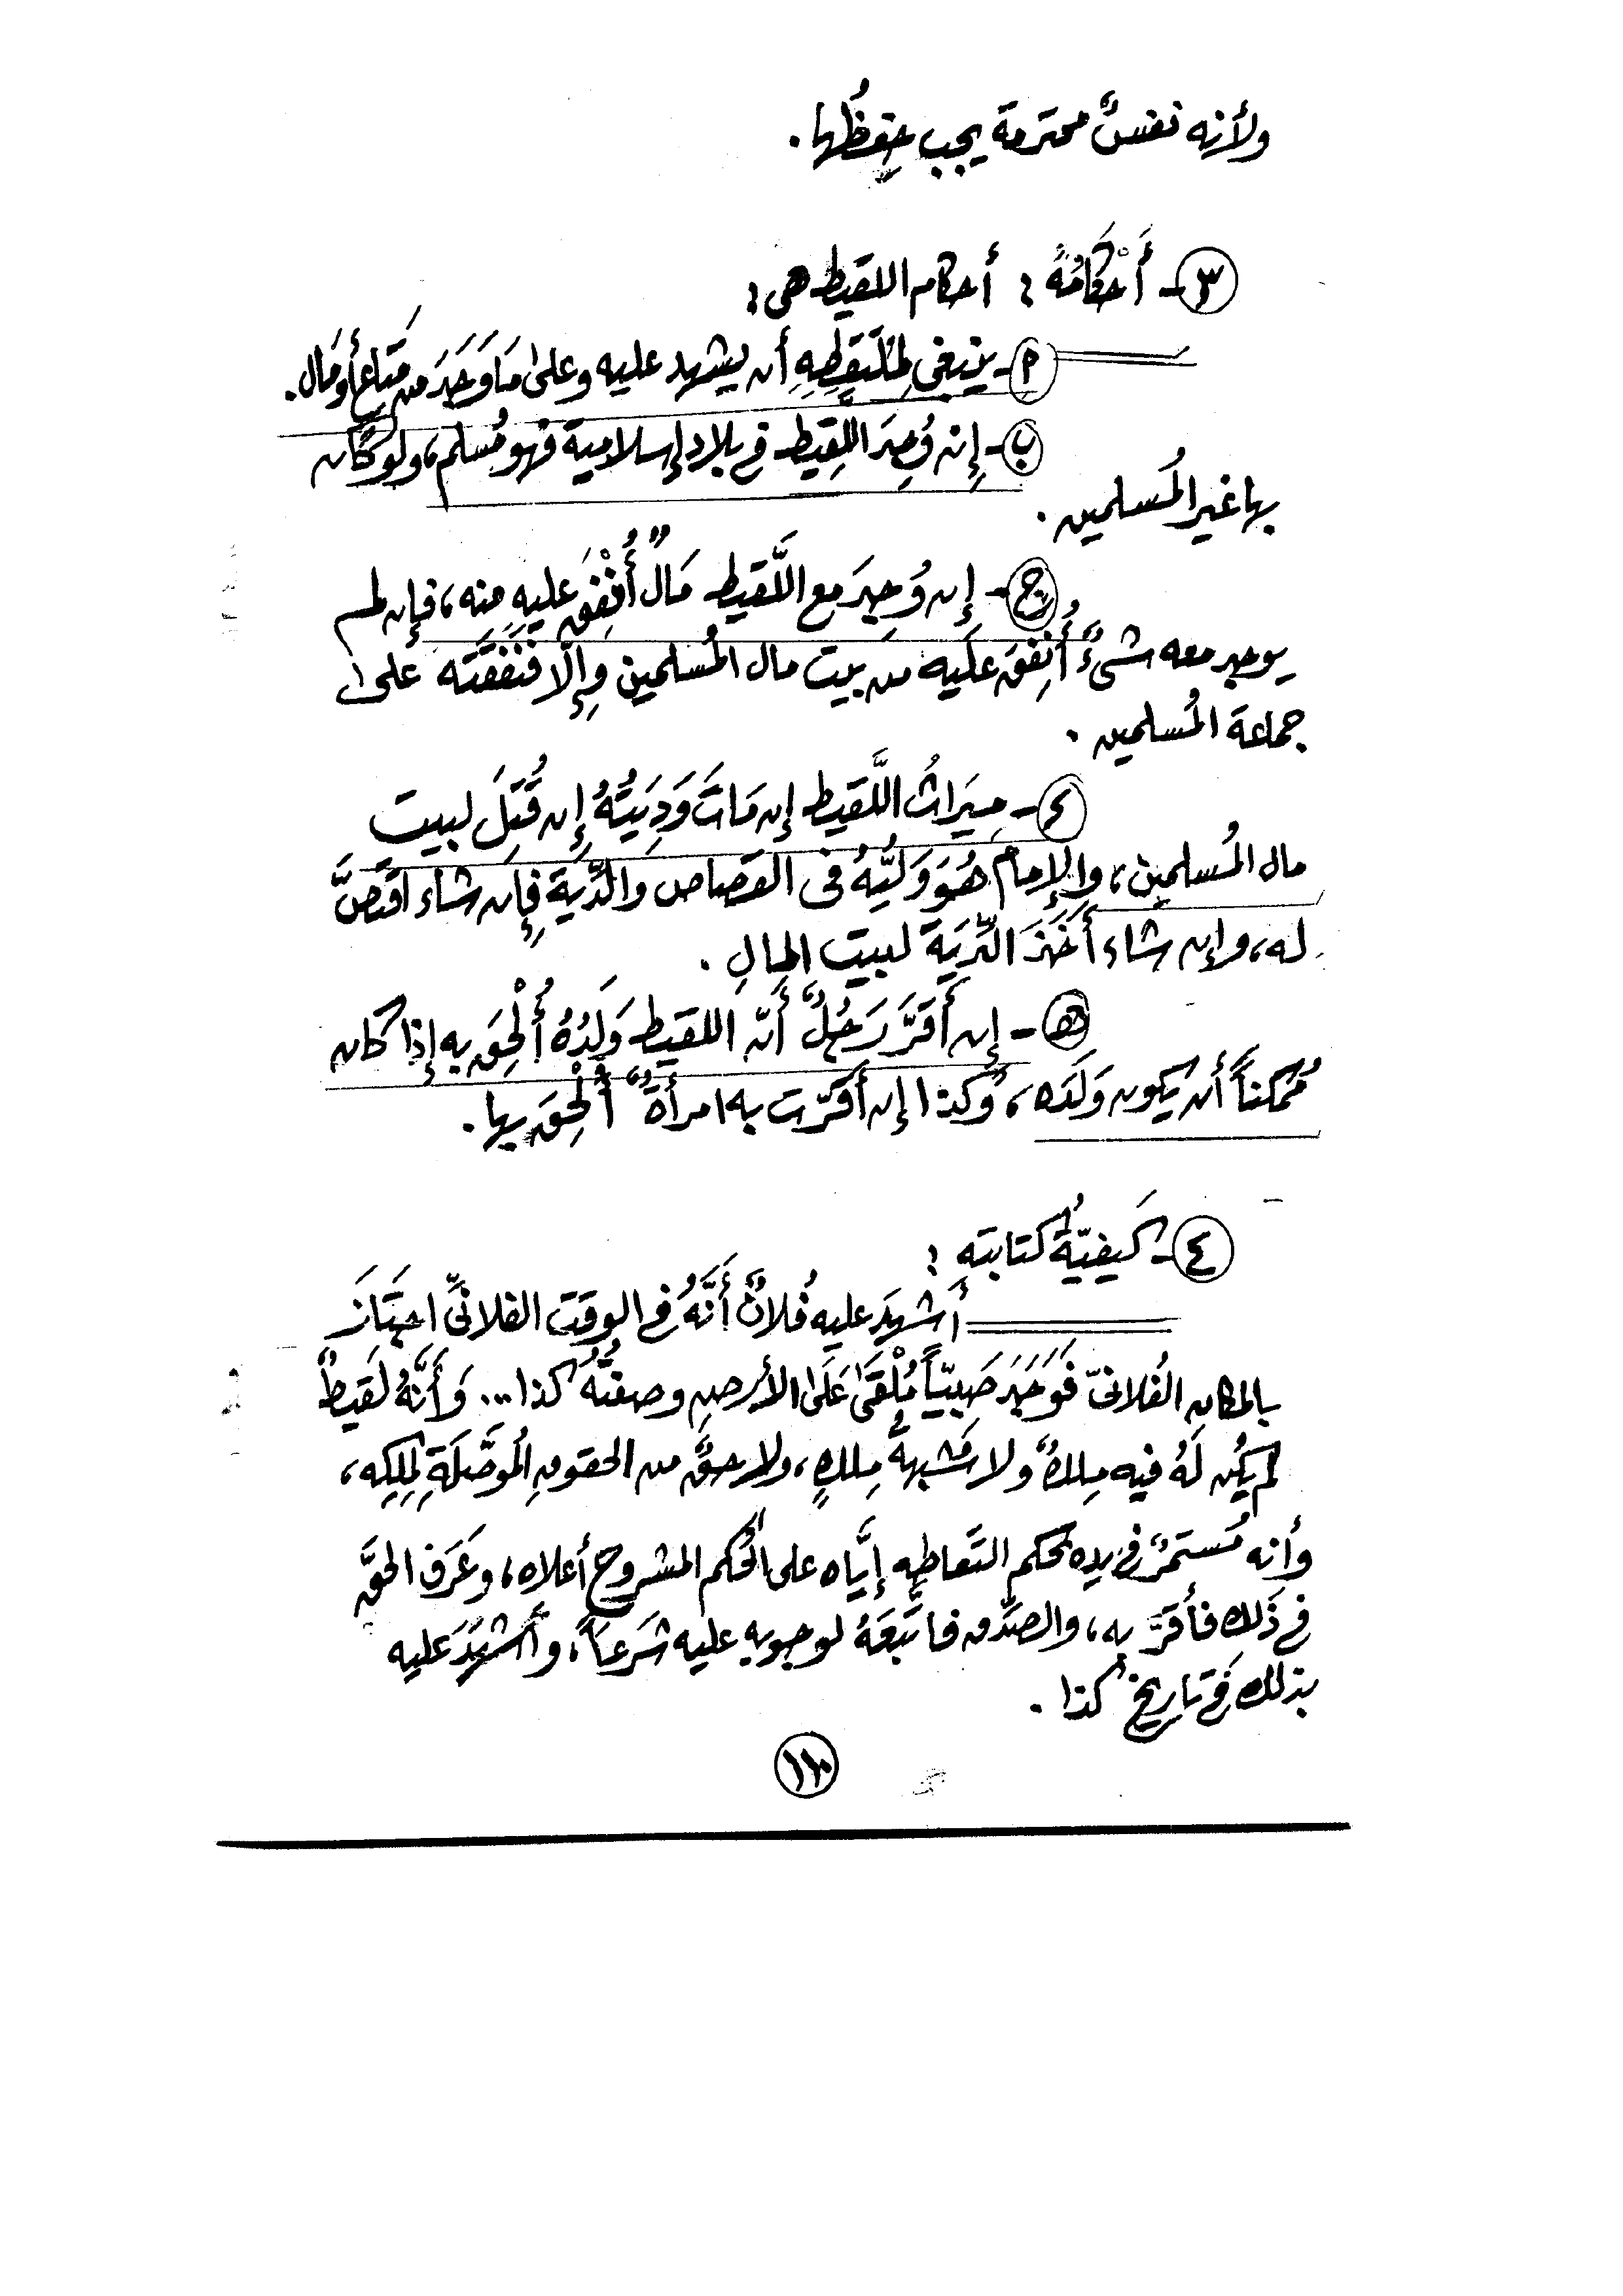 ولأنه نفسٌ محترمة يجب حِفظُها.
٣- أَحْكَامُهُ : أحكام اللقيط هى :
أ- ينبغى لِمُلْتَقِطِهِ أن يشهد عليه وعلى مَا وَجَدَ من مَتَاعٍ أو مَال.
ب- إِن وُجِدَ اللَّقِيط فى بلاد إسلامية فهو مُسلم، ولو كَان
بها غير المُسلمين.
ج- إن وُجِدَ مع اللَّقيط مَالٌ أُنْفِقَ عليهِ منه، فإن لم
يوجد معه شىءٌ أُنِفقَ عَلَيه من بيت مال المُسلمين وَإِلَّا فَنَفَقَتَه على
جماعة المُسلمين.
د- مِيَراثُ اللَّقيط إن مَاتَ وَدِيَتُهُ إِن قُتِلَ لبيت
مال المُسلمين، والإمام هُوَ وَلِيُّهُ فى القصاص والدِّيَة فِإن شاء اقتصَّ
له، وإن شاء أَخَذَ الدِّيَةَ لبيت المالِ.
هـ- إن أَقَرَّ رَجُلٌ أَنّ اللقيط وَلَدُهُ أُلْحِقَ به إذا كان
مُمكناً أن يكون وَلَدَه، وَكذا إن أَقَرّت به امرأةٌ أُلْحِقَ بها.
٤- كَيفيّةُ كتابتهِ :
أشهَدَ عليه فُلانٌ أَنَّهُ فى الوقت الفلانىِّ اجتَازَ
بالمكانِ الفُلانىّ فَوَجَدَ صَبِيّاً مُلْقَىً عَلَى الأرضِ وصفتُهُ كذا... وَأَنَّهُ لَقيطٌ
لم يكُن لَهُ فيه مِلكٌ ولا شُبهةُ مِلكٍ، ولا حقٌّ من الحقوقِ المُوصَّلَةِ لِمِلكِه،
وأنه مُستمرٌ فى يده بحكم التقاطِهِ إيَّاه على الحُكم المشروح أعلاه، وعَرَف الحقَّ
فى ذَلك فأقَرَّ به، والصِّدق فاتَّبَعَهُ لوجوبهِ عليه شَرَعاً، وأَشهَدَ عليه
بذلك فى تاريخ كذا.
١١٠